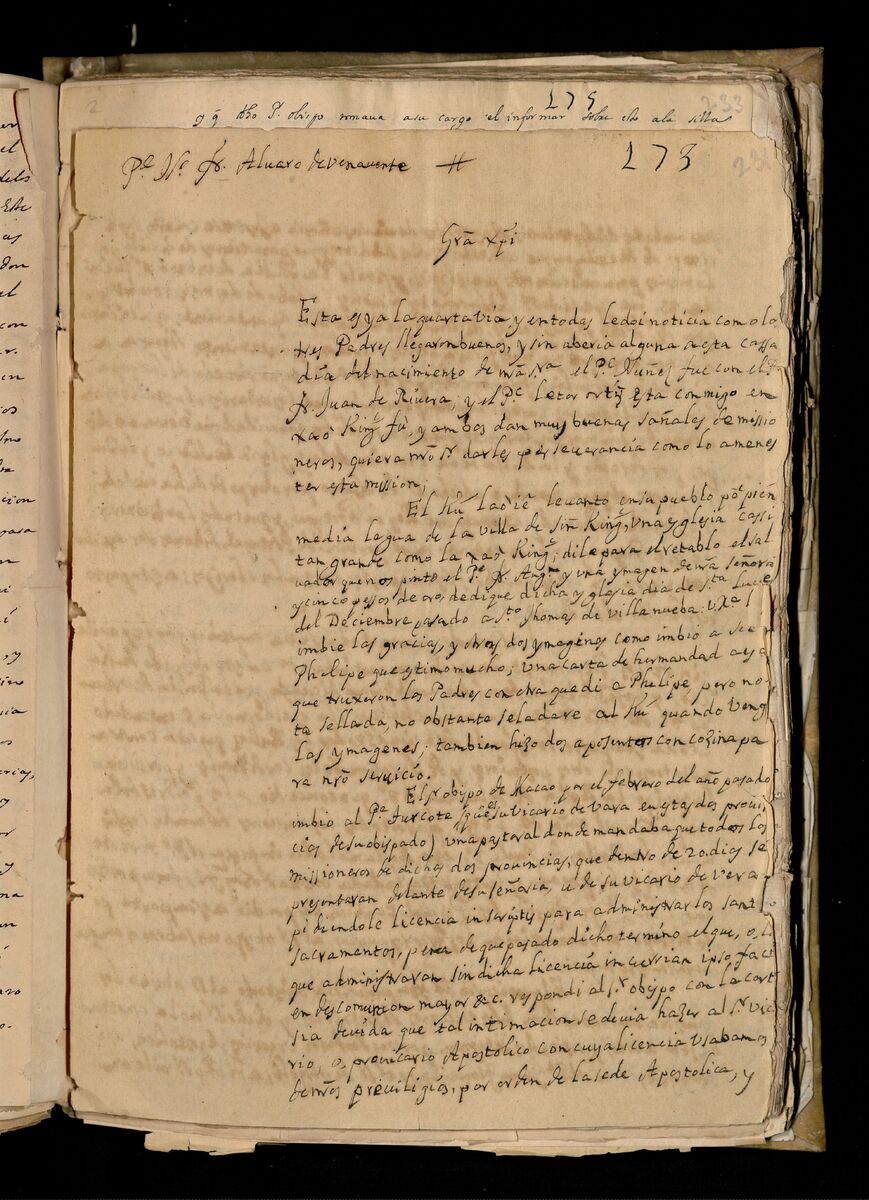 175
233
2
q̃ q̃ dho P. obispo romana a su cargo el informar sobre esto a la silla
Pe. No. fr. Alvaro de Venavente
173
232
Gra xpi
Esta es ya la quarta via y en todas le doi noticia como lo,
tres Padres llegaron buenos, y sin aberia alguna a esta cassa
dia del nacimiento de nra Sra el Pe. Nuñez fue con el P.
fr. Juan de Rivera, y el Pe. letor ortiz esta conmigo en
xaò King fù, y ambos dan muy buenas sañales de missio
neros, quiera nro Sr. darles perseverancia como lo a menes
ter esta mission;
El Kiù laòiè levanto en su pueblo
media legua de la villa de Sin King, una yglesia cassi
tan grande como la xaò King; dile para el retablo el sal
vador que nos pinto el Pe. fr. Angl. y una ymagen de nra Señora
y cinco pessos de oro, dedique dicha yglesia dia de Sta. Lucie
del Deciembre pasado a Sto. Thomas de Villanueba: V. Ra.
imbie las gracias, y otras dos ymagenes como imbio a
Phelipe que estimo mucho; una carta de hermandad
que truxeron los Padres con otra que di a Phelipe, pero no
ta sellada, no obstante se la dare al Kiù quando Veng
las ymagenes; tambien hizo dos aposentos con cozina pa
ra nro servicio.
El sr obispo de Macao por el febrero del año pasado
imbio al Pe. Turcote (que es su vicario de vara en estas dos provi
cias de su obispado) una pastoral donde mandaba que todos los
missioneros de dichas dos provincias, que dentro de 20. dias se
presentaran delante de su señoria, ù de su vicario de vera
pidiendole licencia in scriptis para administrar los sant
sacramentos, pena de que pasado dicho termino el que, o,
que administraran sin dicha licencia incurrian ipso fact
en descomunion mayor &c. respondi al sr. obispo con la cort
sia devida que tal intimacion se devia hazer al sr. Vic
rio, o, provicario Apostolico con cuya licencia usabamos
de nros previligios, por orden de la sede Apostolica, y